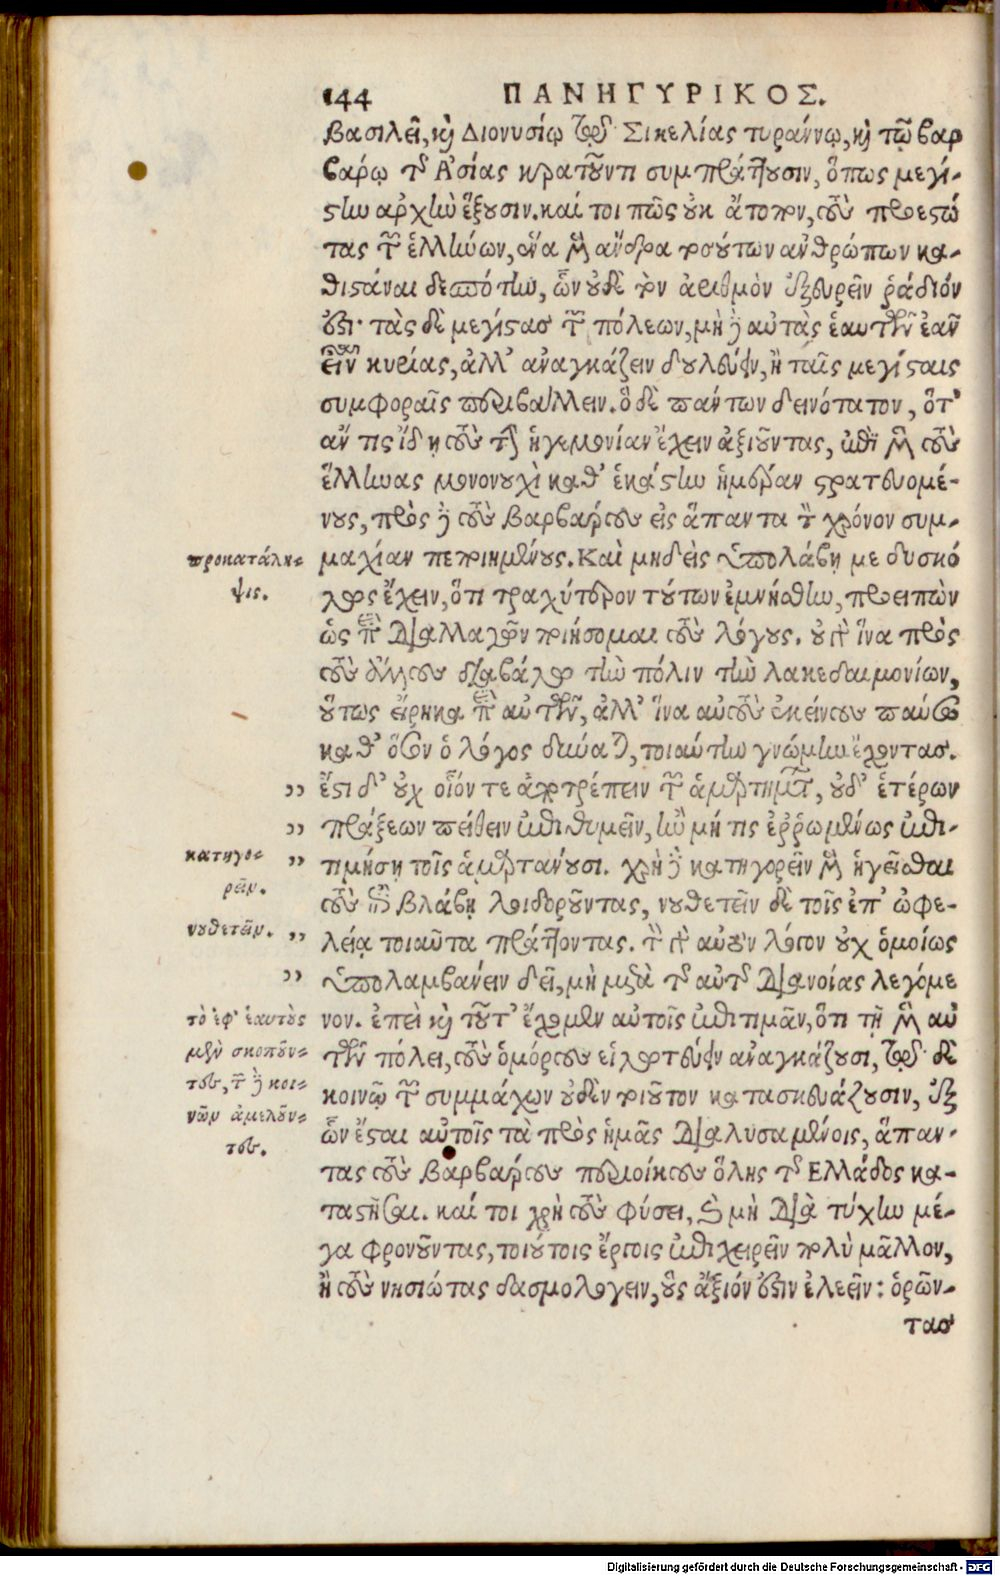 144 ΠΑΝΗΓΥΡΙΚΟΣ.
βασιλεῖ, καὶ Διονυσίῳ τῷ Σικελίας τυράννῳ, καὶ τῷ βαρ
βάρῳ τῷ τῆς Ἀσίας κρατοῦντι συμπράττουσιν, ὅπως μεγί-
στην ἀρχὴν ἕξουσιν. καί τοι πῶς οὐκ ἄτοπον, τοὺς προεστῶ
τας τῶν ἑλλήνων, ἕνα μὲν ἄνδρα τοσούτων ἀνθρώπων κα-
θιστάναι δεσπότην, ὧν οὐδὲ τὸν ἀριθμὸν ἐξευρεῖν ῥάδιόν
ἐστι· τὰς δὲ μεγίστας τῶν πόλεων, μὴ δὲ αὐτὰς ἑαυτῶν ἐᾶν
εἶναι κυρίας, ἀλλ' ἀναγκάζειν δουλεύειν, ἢ ταῖς μεγίσταις
συμφοραῖς περιβάλλειν. ὃ δὲ πάντων δεινότατον, ὅτ'
ἄν τις ἴδῃ τοὺς τὴν ἡγεμονίαν ἔχειν ἀξιοῦντας, ἐπὶ μὲν τοὺς
ἕλληνας μονονουχὶ καθ' ἑκάστην ἡμέραν στρατευομέ-
νους, πρὸς δὲ τοὺς βαρβάρους εἰς ἅπαντα τὸν χρόνον συμ-
προκατάλη- μαχίαν πεποιημένους. Καὶ μηδεὶς ὑπολάβῃ με δυσκό
ψις. λως ἔχειν, ὅτι τραχύτερον τούτων ἐμνήσθην, προειπὼν
ὡς περὶ διαλλαγῶν ποιήσομαι τοὺς λόγους. οὐ γὰρ ἵνα πρὸς
τοὺς ἄλλους διαβάλω τὴν πόλιν τὴν λακεδαιμονίων,
οὕτως εἴρηκα περὶ αὐτῶν, ἀλλ' ἵνα αὐτοὺς ἐκείνους παύσω
καθ' ὅσον ὁ λόγος δύναται, τοιαύτην γνώμην ἔχοντας.
,, ἔστι δ' οὐχ οἷόν τε ἀποτρέπειν τῶν ἁμαρτημάτων, οὐδ' ἑτέρων
,, πράξεων πείθειν ἐπιθυμεῖν, ἢν μή τις ἐρρωμένως ἐπι-
κατηγο- ,, τιμήσῃ τοῖς ἁμαρτάνουσι. χρὴ δὲ κατηγορεῖν μὲν ἡγεῖσθαι
ρεῖν. τοὺς ἐπὶ βλάβῃ λοιδοροῦντας, νουθετεῖν δὲ τοῖς ἐπ' ὠφε-
νουθετεῖν. ,, λείᾳ τοιαῦτα πράττοντας. τὸν γὰρ αὐτὸν λόγον οὐχ ὁμοίως
,, ὑπολαμβάνειν δεῖ, μὴ μετὰ τῆς αὐτῆς διανοίας λεγόμε
τὸ ἐφ' ἑαυτοὺς νον. ἐπεὶ καὶ τοῦτ' ἔχομεν αὐτοῖς ἐπιτιμᾶν, ὅτι τῇ μὲν αὑ
μὲν σκοποῦν- τῶν πόλει, τοὺς ὁμόρους εἱλωτεύειν ἀναγκάζουσι, τῷ δὲ
τας, τῶν δὲ κοι- κοινῷ τῶν συμμάχων οὐδὲν τοιοῦτον κατασκευάζουσιν, ἐξ
νῶν ἀμελοῦν- ὧν ἔσται αὐτοῖς τὰ πρὸς ἡμᾶς διαλυσαμένοις, ἅπαν-
τας. τας τοὺς βαρβάρους περιοίκους ὅλης τῆς Ἑλλάδος κα-
ταστῆσαι. καί τοι χρὴ τοὺς φύσει, καὶ μὴ διὰ τύχην μέ-
γα φρονοῦντας, τοιούτοις ἔργοις ἐπιχειρεῖν πολὺ μᾶλλον,
ἢ τοὺς νησιώτας δασμολογεῖν, οὓς ἄξιόν ἐστιν ἐλεεῖν: ὁρῶν-
τας
Digitalisierung gefördert durch die Deutsche Forschungsgemeinschaft - DFG